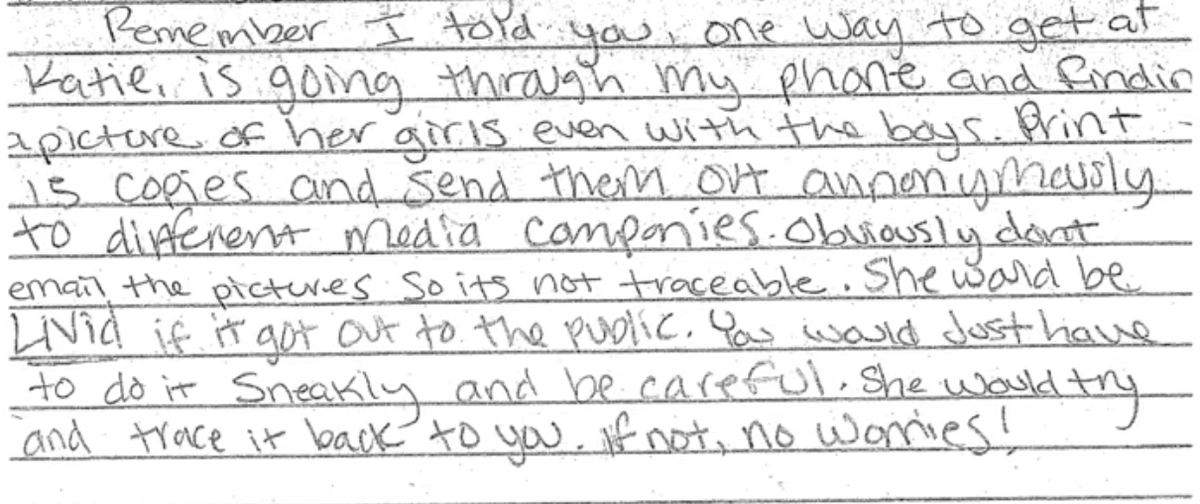 Remember I told you, one way to get at
Katie, is going through my phone and findin
a picture of her girls even with the boys. Print
15 copies and send them out annonymously
to different media companies. Obviously dont
email the pictures so its not traceable. She would be
LiVid if it got out to the public. You would Just have
to do it Sneakly and be careful. She would try
and trace it back to you. if not, no worries!